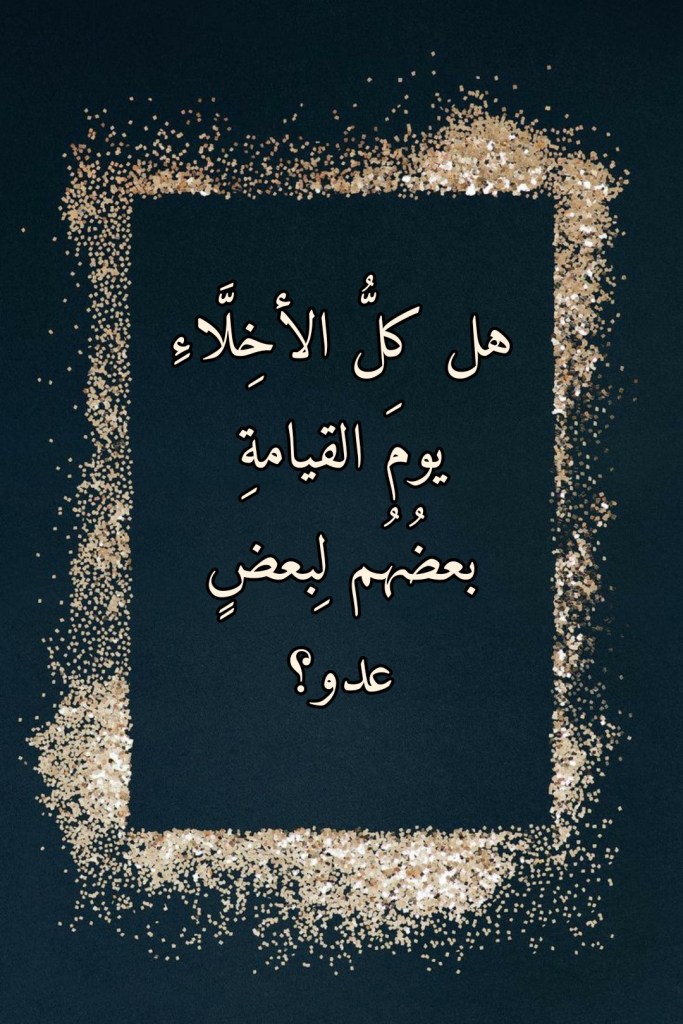 هل كلُّ الأخِلَّاءِ
يومَ القيامةِ
بعضُهُم لِبعضٍ
عدو؟